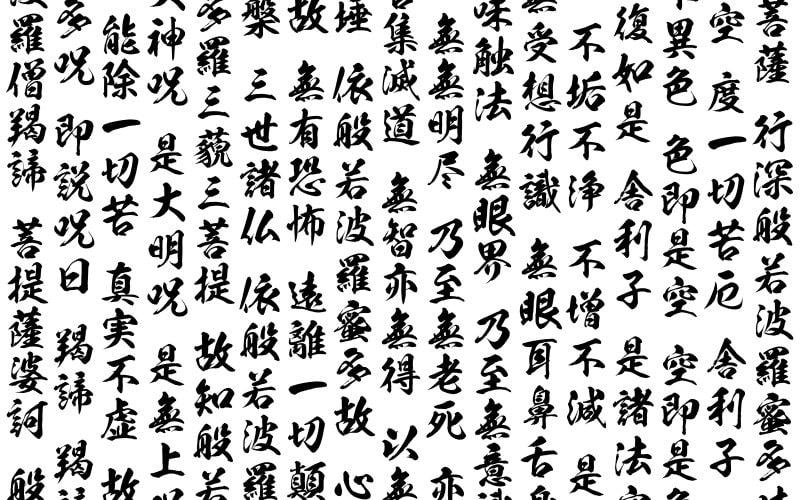 菩薩 行深般若波羅蜜多
空 度一切苦厄 舎利子
異色 色即是空 空即是色
復如是 舎利子 是諸法空
不垢不浄 不増不減 是
無受想行識 無眼耳鼻舌
味触法 無眼界 乃至無意
無無明尽 乃至無老死 亦
集滅道 無智亦無得 以無
埵 依般若波羅蜜多故 心
故 無有恐怖 遠離一切顛
槃 三世諸仏 依般若波羅
多羅三藐三菩提 故知般若
神呪 是大明呪 是無上呪
能除一切苦 真実不虚 故
多呪 即説呪曰 羯諦 羯諦
波羅僧羯諦 菩提薩婆訶 般